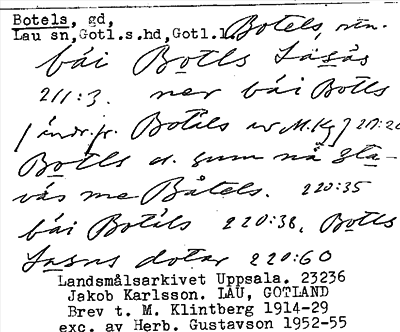 Botels, gd,
Lau sn, Gotl.s.hd, Gotl.l. Botels, nn.
bái Botls Lasas
211:3. ner bái Botls
/ ändr. fr. Botäls av M. Kg / 217:20
Botls a. sum nå sta-
vas me Båtels. 220:35
bái Botäls 220:38, Botls
Lasns dotar 220:60
Landsmålsarkivet Uppsala. 23236
Jakob Karlsson. LAU, GOTLAND
Brev t. M. Klintberg 1914-29
exc. av Herb. Gustavson 1952-55